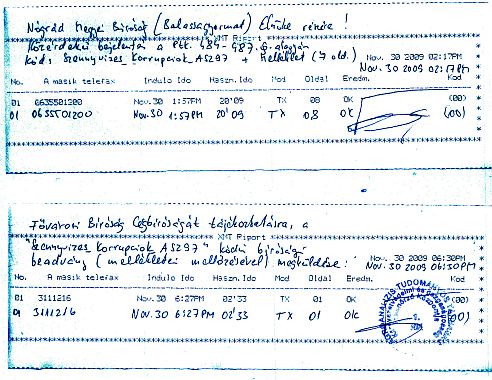 Nógrád Megyei Bíróság (Balassagyarmat) Elnöke részére!
Közérdekű bejelentés a Ptk. 484-487.§ alapján
XMT Riport
kód: Szennyvizes Korrupciók AS297 + Melléklet (7 old.)
Nov. 30 2009 02:17PM
Nov. 30 2009 02:17PM
A masik telefax Indulo Ido Haszn. Ido Mod Oldal Eredm. Kod
01 6635501200 Nov.30 1:57PM 20'09 TX 08 OK (00)
01 0635501200 Nov.30 1:57PM 20'09 TX 08 ok (00)
Fővárosi Bíróság Cégbíróságát tájékoztatásra, a
XMT Riport
"Szennyvizes Korrupciók AS297" kódú bírósági
beadvány (mellékletei mellőzésével) megküldése:
Nov. 30 2009 06:30PM
Nov. 30 2009 06:30PM
A masik telefax Indulo Ido Haszn. Ido Mod Oldal Eredm. Kod
01 3111216 Nov. 30 6:27PM 02'33 TX 01 OK (00)
01 3111216 Nov. 30 6:27PM 02'33 TX 01 ok (00)